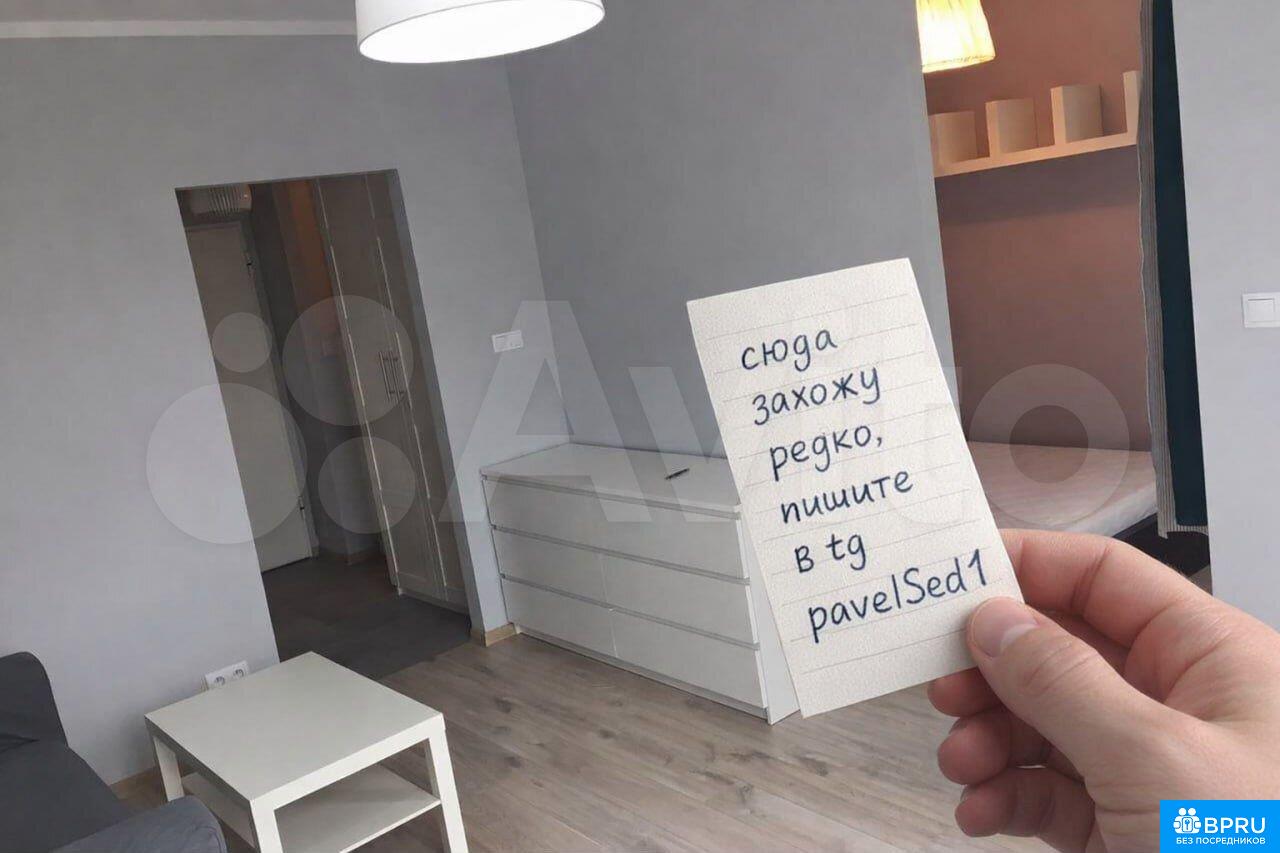 Avito
сюда
захожу
редко,
пишите
в tg
pavelSed1
BPRU
БЕЗ ПОСРЕДНИКОВ